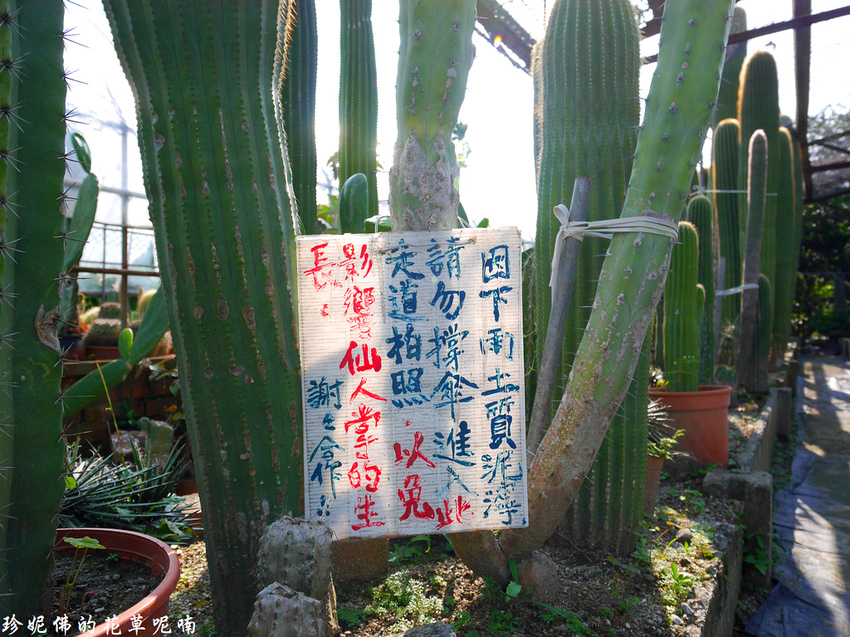 因下雨土質泥濘
請勿撐傘進入此
走道拍照.以免
影響仙人掌的生
長.謝々合作!!
珍妮的花草呢喃